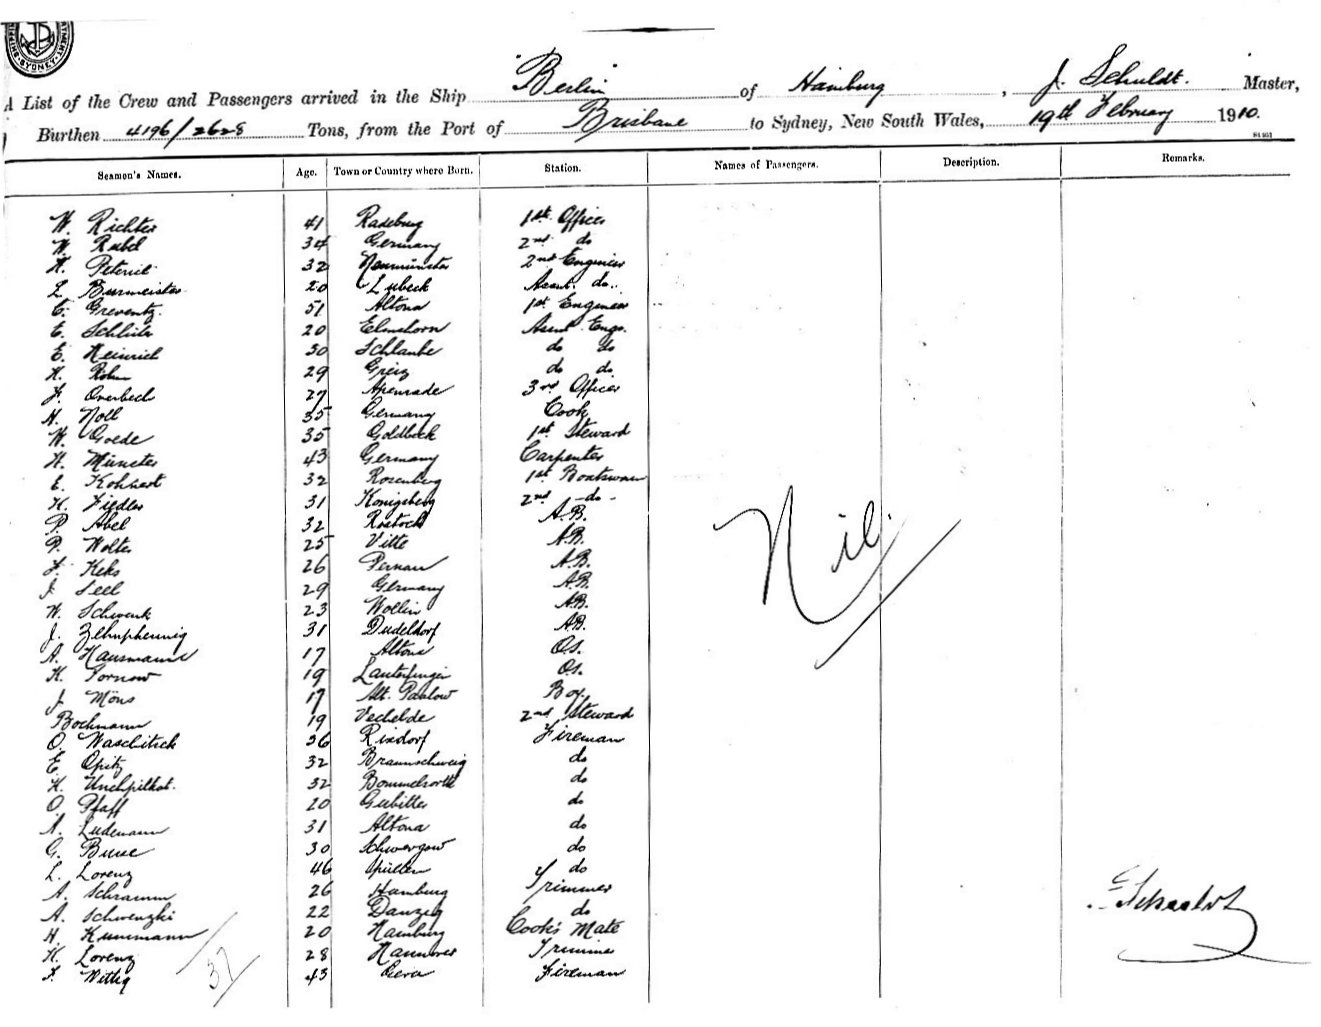 SYDNEY
A List of the Crew and Passengers arrived in the Ship "Berlin of Hamburg, J. Schuldt. Master,
Burthen 4196/2628 Tons, from the Port of Brisbane to Sydney, New South Wales, 19th February 1910.
Seamen's Names. Age. Town or Country where Born. Station. Names of Passengers. Description. Remarks.
W. Richter 41 Radeburg 1st Officer
W. Rubel 34 Germany 2nd do
H. 32 Neumünster 2nd Engineer
L. Burmeister 20 Lubeck Assnt. do.
C. Greventz. 51 Altona 1st Engineer
E. Schlüter 20 Elmshorn Assnt Engr.
E. Heinrich 30 Schlaube do do
H. 29 Greiz do do.
F. Overbeck 27 Apenrade 3rd Officer
H. Noll 35 Germany Cook
W. Goede 35 Goldbeck 1st Steward
H. Münster 43 Germany Carpenter
E. Kohhert 32 Rosenberg 1st Boatswain
K. Fiedler 31 Konigsberg 2nd -do-
P. Abel 32 Rostock A.B.
P. Wolter 25 Vitte A.B.
F. Keks 26 Pernau A.B.
J. Seel 29 Germany A.B.
W. Schwenk 23 Wollin A.B.
J. Zehnphennig 31 Dudeldorf A.B.
A. Hausmann 17 Altona O.S.
K. Tornow 19 O.S.
J. Möns 17 Alt. Boy
Bochmann 19 Vechelde 2nd Steward
O. Waschitsck 36 Rixdorf Fireman
E. Opitz 32 Braunschweig do
K. 32 do
O. Pfaff 20 do
A. Ludemann 31 Altona do
G. Buse 30 do
L. Lorenz 46 do
A. Schramm 26 Hamburg Trimmer
A. Schwenzki 22 Danzig do
H. Kunimann 20 Hamburg Cook's Mate
K. Lorenz 28 Hannover Trimmer
F. Wittig 43 Gera Fireman
Nil.
37